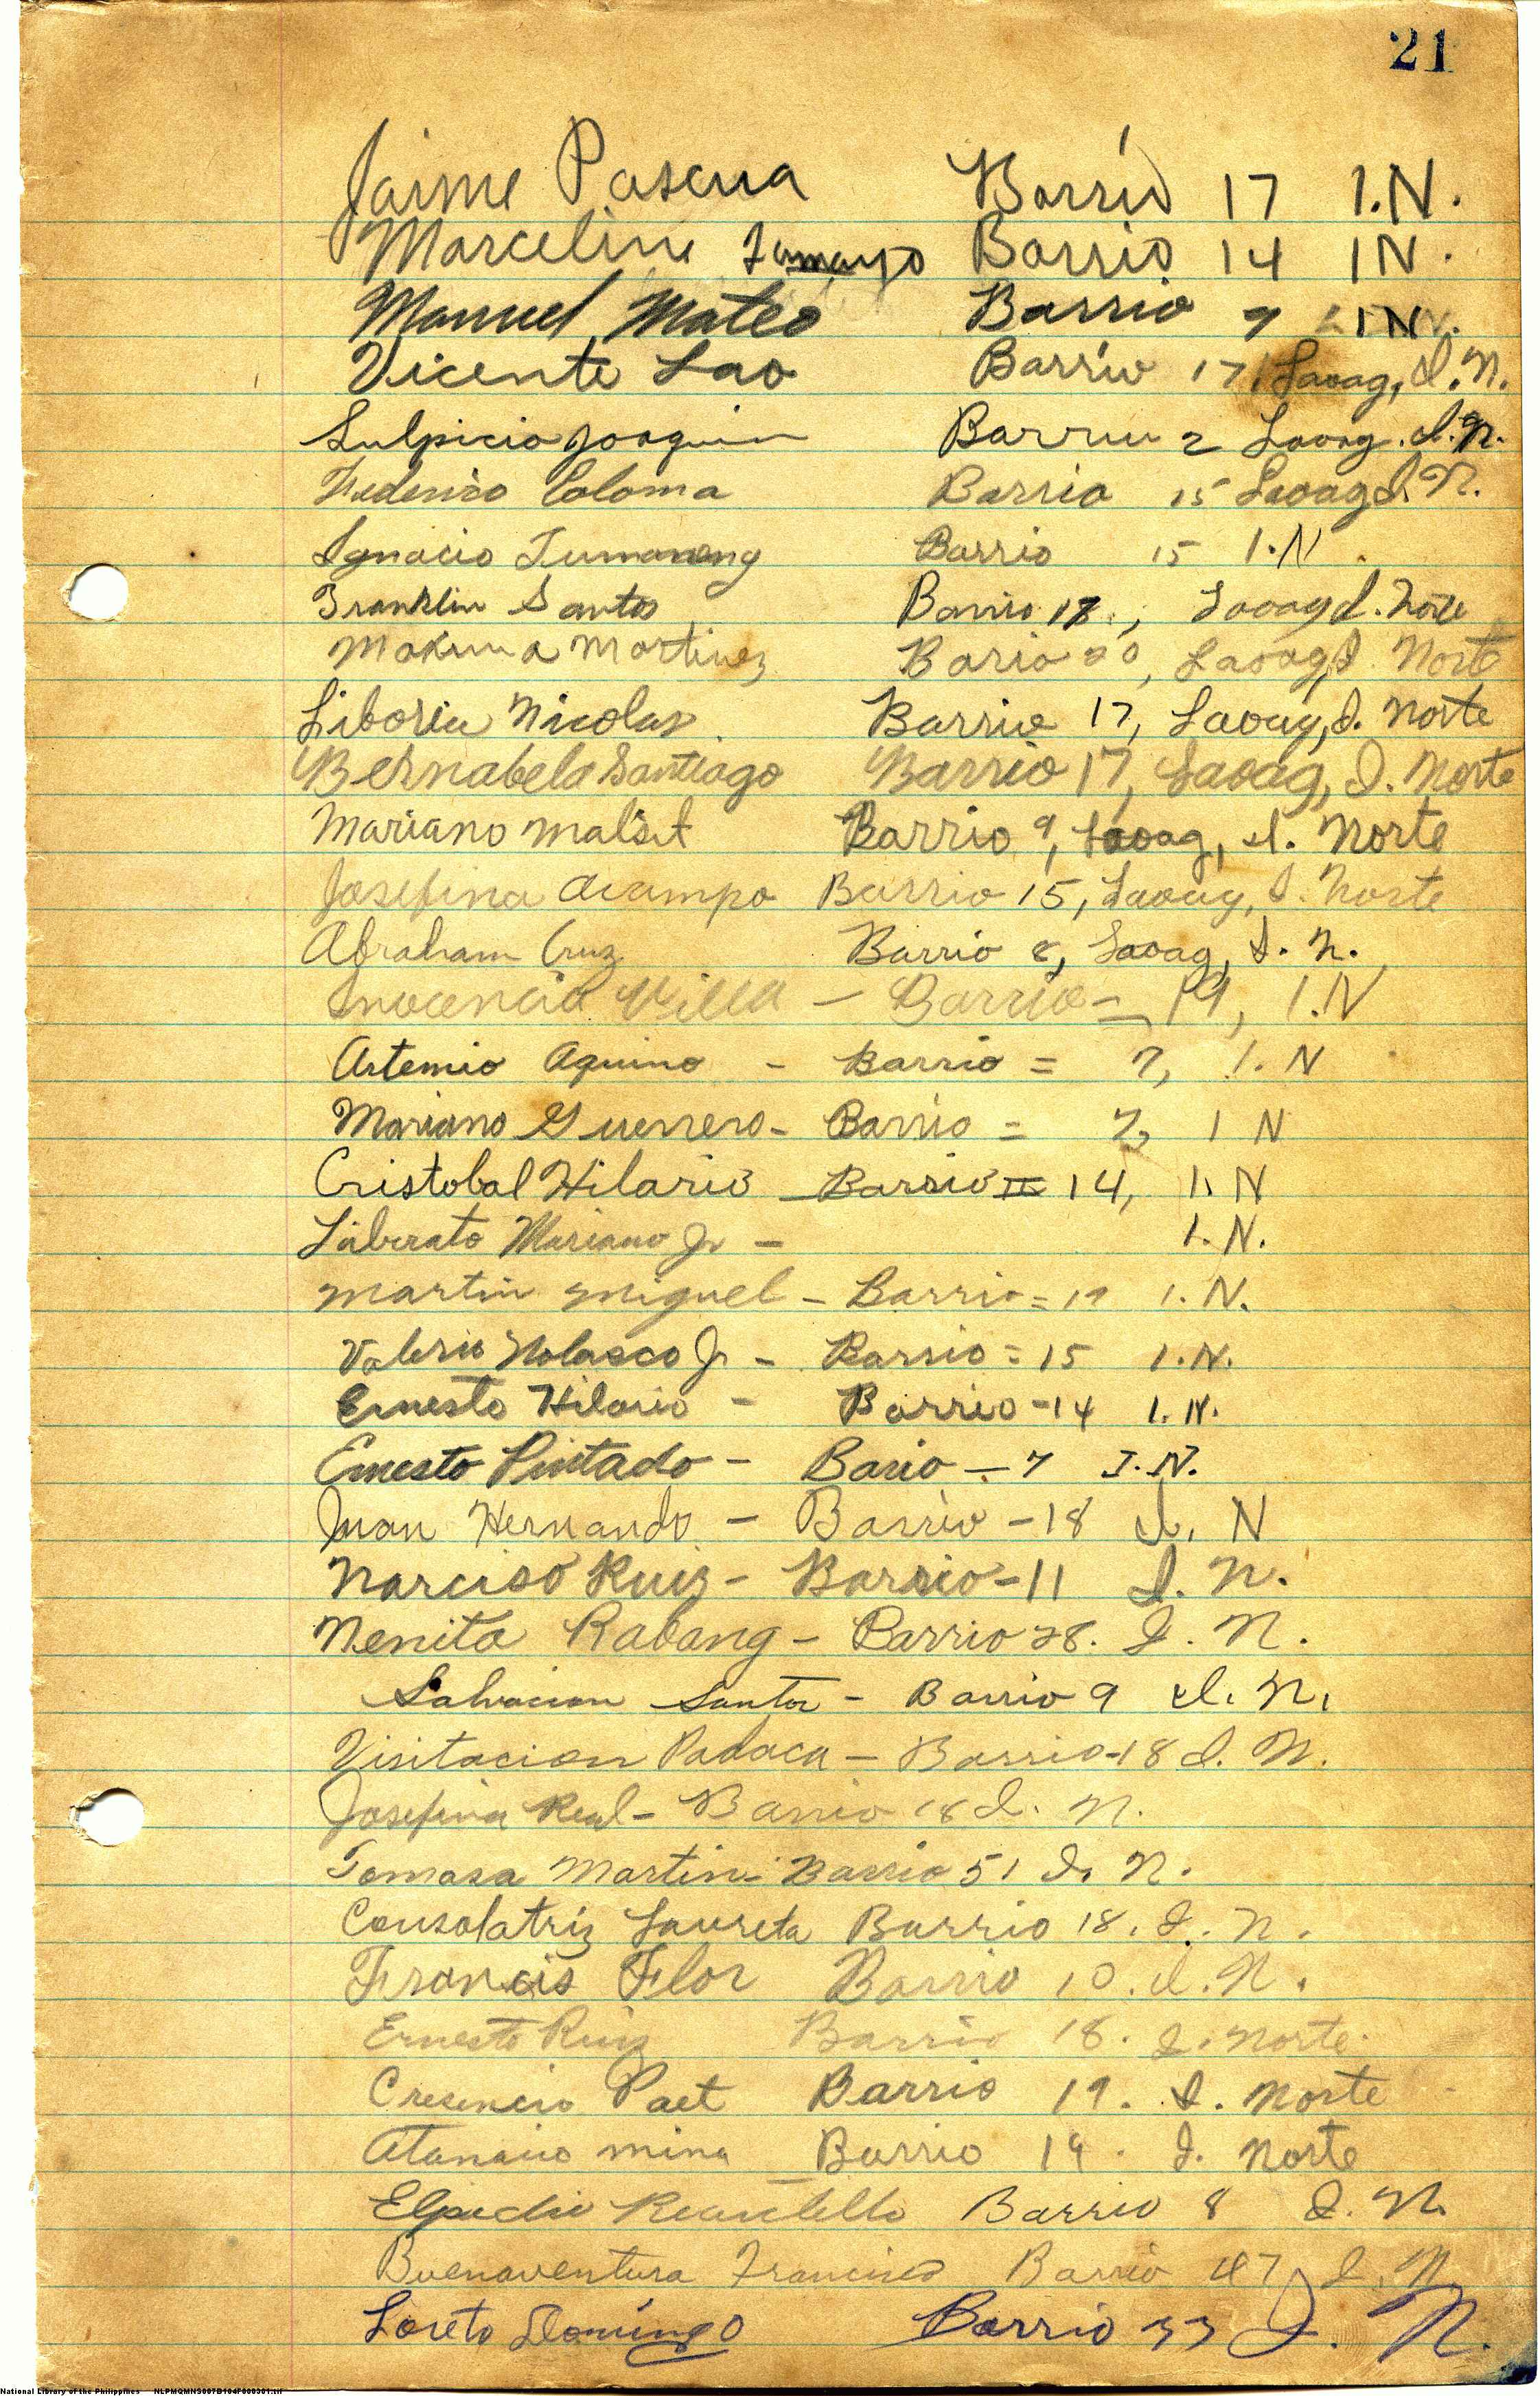 21
Jaime Pascua Barrio 17 I.N.
Marcelino Tamayo Barrio 14 IN.
Manuel Mateo Barrio 9 IN.
Vicente Lao Barrio 17, Laoag, I.N.
Sulpicio Joaquin Barrio 2 Laoag. I.N.
Federico Coloma Barrio 15 Laoag I. N.
Ignacio Tumaneng Barrio 15 I.N.
Franklin Santos Barrio 18, Laoag I. Norte
Maxima Martinez Bario 20, Laoag, I. Norte
Liborio Nicolas Barrio 17, Laoag, I. Norte
Bernabela Santiago Barrio 17, Laoag, I. Norte
Mariano Malsit Barrio 9, Laoag, I. Norte
Josefina Ocampo Barrio 15, Laoag, I. Norte
Abraham Cruz Barrio 8, Laoag, I. N.
Inocencia Villa - Barrio = 19, I.N
Artemio Aquino - Barrio = 7, I.N
Mariano Guerrero - Barrio = 7, I N
Cristobal Hilario - Barrio = 14, I. N
Liberato Mariano Jr - I.N.
Martin Miguel - Barrio = 19 I.N.
Valerio Nolasco Jr - Barrio = 15 I.N.
Ernesto Hilario - Barrio - 14 I.N.
Ernesto Pintado - Bario - 7 I.N.
Juan Hernando - Barrio - 18 I. N
Narciso Ruiz - Barrio - 11 I. N.
Nenita Rabang - Barrio 28. I. N.
Salvacion Santos - Barrio 9 I. N.
Visitacion Padaca - Barrio - 18 I. N.
Josefina Real - Barrio 18 I. N.
Tomasa Martin - Barrio 51 I. N.
Consolatriz Laureta Barrio 18. I. N.
Francis Flor Barrio 10. I. N.
Ernesto Ruiz Barrio 18. I. Norte.
Cresencio Paet Barrio 19. I. Norte
Atanacio Mina Barrio 19. I. Norte
Elpedio Barrio 8 I. N.
Buenaventura Francisco Barrio 47 I. N.
Loreto Domingo Barrio 33 I. N.
National Library of the Philippines NLPMQMNS007B104F000301.tif